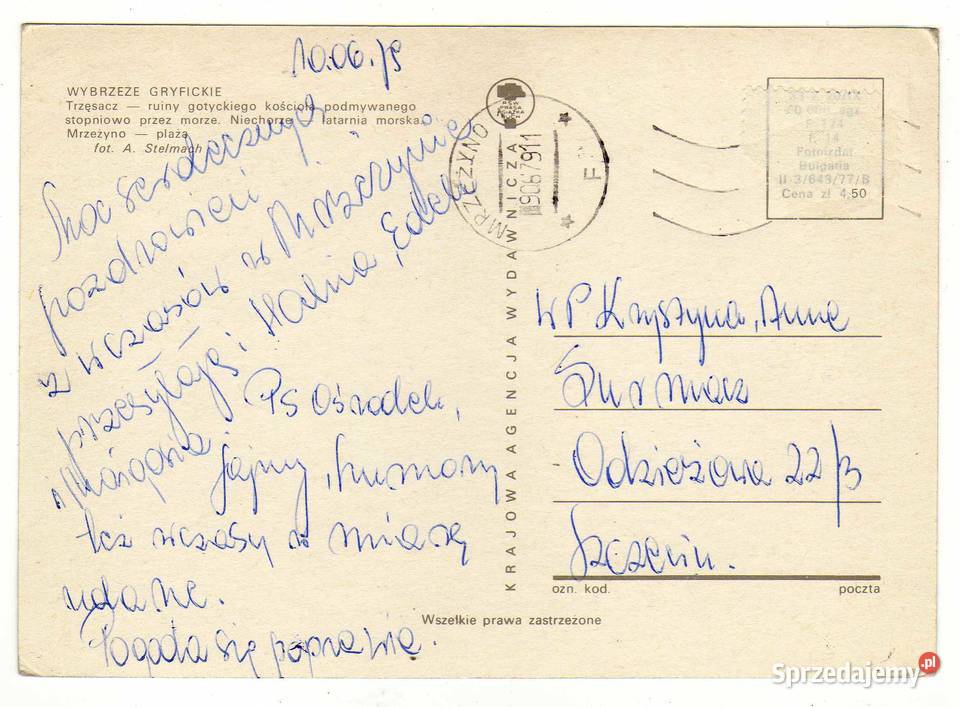 10.06.79
WYBRZEŻE GRYFICKIE
Trzęsacz — ruiny gotyckiego kościoła podmywanego
stopniowo przez morze. Niechorze — latarnia morska.
Mrzeżyno — plaża
fot. A. Stelmach
Moc serdecznych
pozdrowień
z wczasów w Mrzeżynie
przesyłają, Halina, Edek
i Małgosia.
PS Ośrodek,
fajny, humory
też wczasy w miarę
udane.
Pogoda się poprawia.
KRAJOWA AGENCJA WYDAWNICZA
RSW PRASA KSIĄŻKA RUCH
MRZEŻYNO
F
60 000 egz.
Fotoizdat
Bulgaria
II-3/649/77/B
Cena zł 4,50
WP Krystyna, Anna
Odzieżowa 22/3
Szczecin.
ozn. kod.
poczta
Wszelkie prawa zastrzeżone
Sprzedajemy.pl